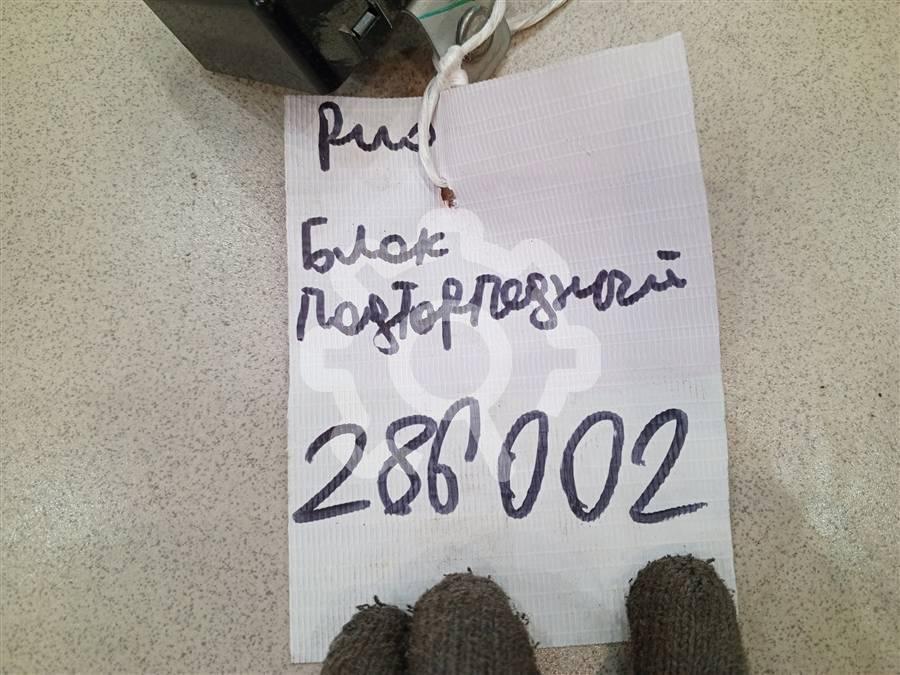 Рио
Блок
подторпедный
286002